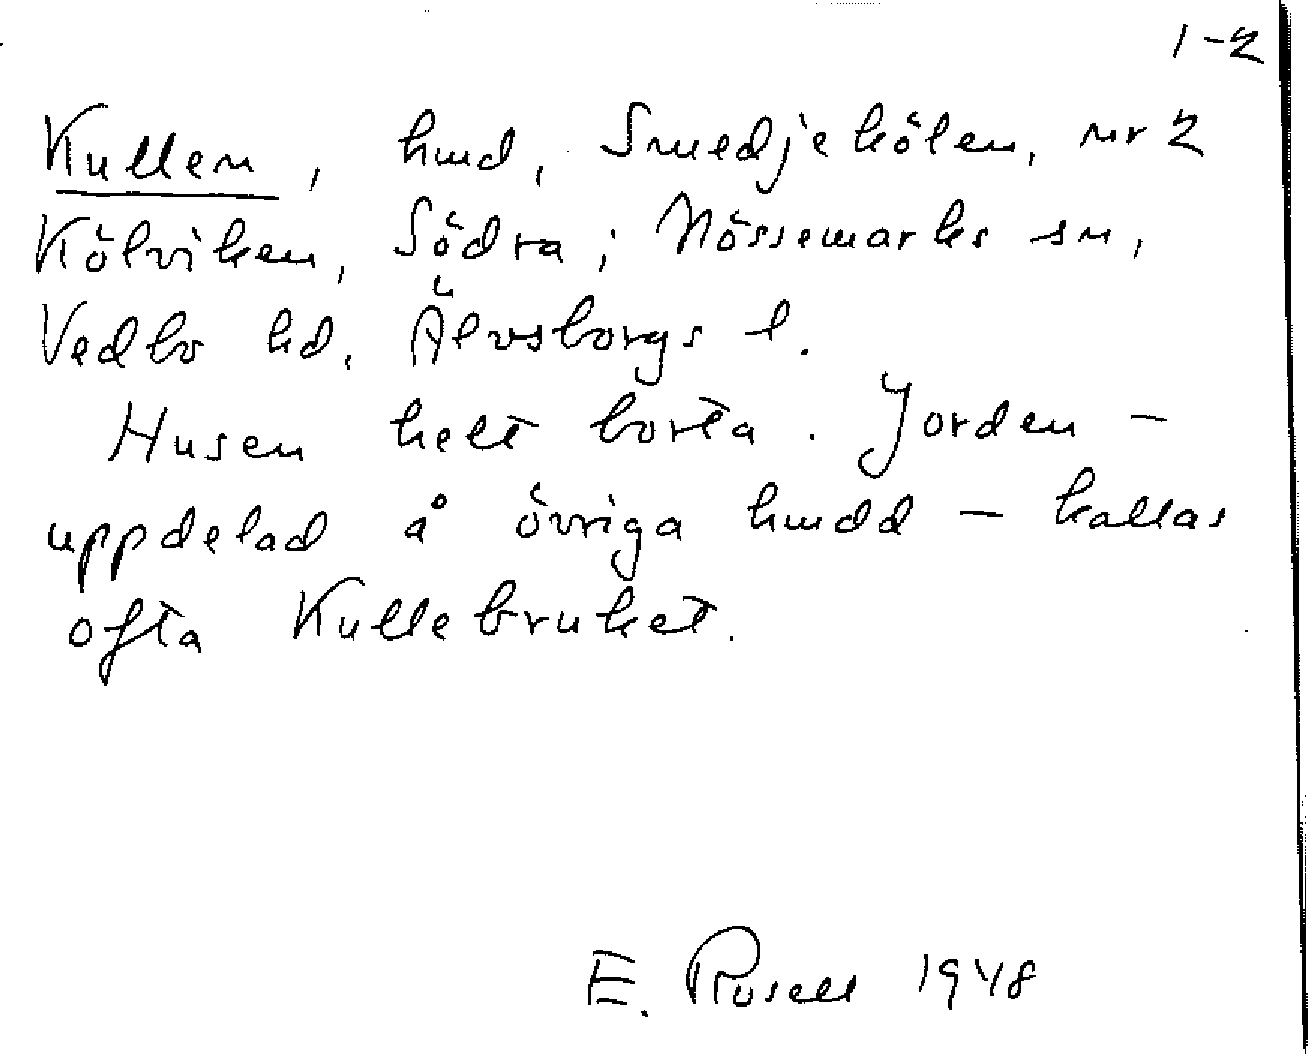 1-2
Kullen, hmd, Smedjekölen, nr 2
Kölviken, Södra; Nössemarks sn,
Vedbo hd, Älvsborgs l.
Husen helt borta. Jorden -
uppdelad å övriga hmdd - kallas
ofta Kullebruket.
E. Rosell 1948